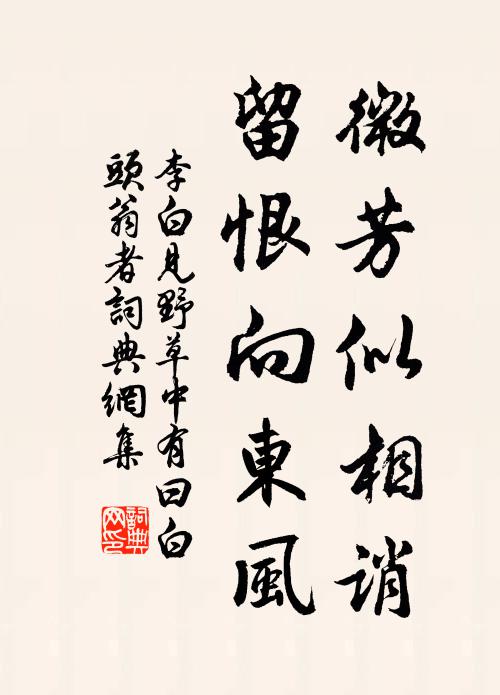 微芳似相誚
留恨向東風
李白見野草中有曰白
頭翁者詞典網集
詞典网印